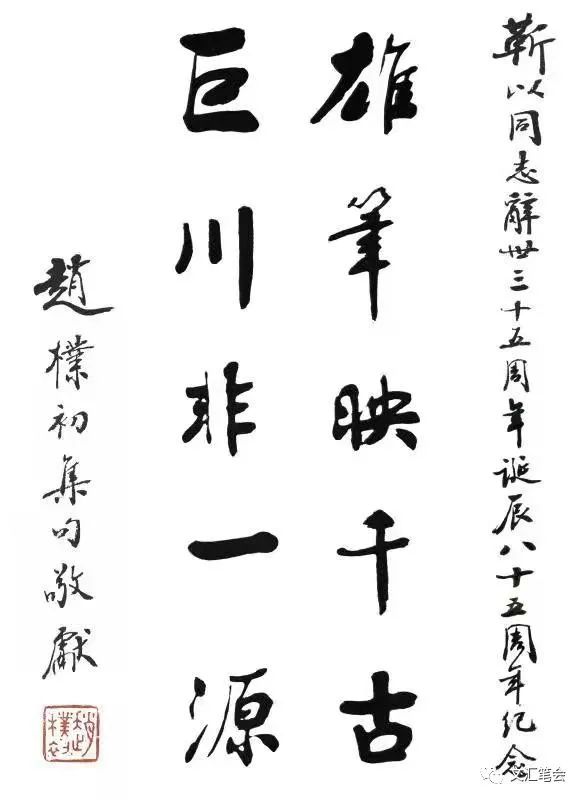 靳以同志辭世三十五周年誕辰八十五周年纪念
雄筆映千古
巨川非一源
趙樸初集句敬獻
趙樸初
文汇笔会